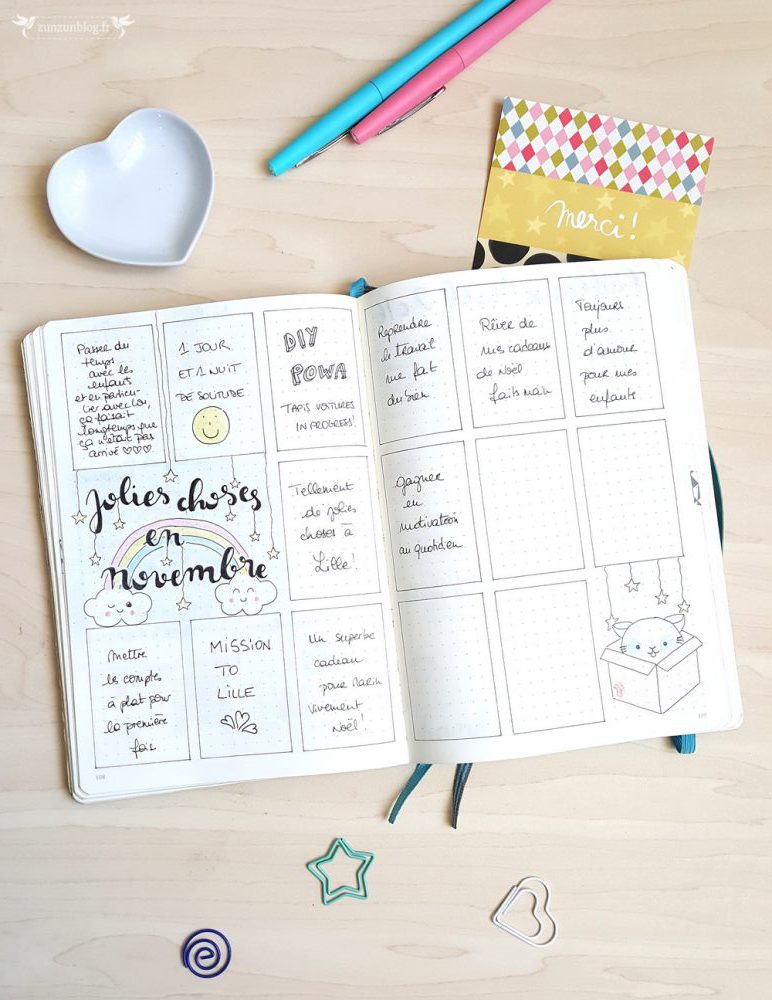 zunzunblog.fr
merci!
Passer du
temps
avec les
enfants
et en particu-
lier avec Lou,
ça faisait
longtemps que
ça n'était pas
arrivé ♡♡♡
1 JOUR
ET 1 NUIT
DE SOLITUDE
DIY
POWA
TAPIS VOITURES
IN PROGRESS!
Jolies choses
en
novembre
Tellement
de jolies
choses à
Lille!
Mettre
les comptes
à plat pour
la première
fois
MISSION
TO
LILLE
Un superbe
cadeau
pour Marin
Vivement
Noël!
108
Reprendre
le travail
me fait
du bien
Rêver de
mes cadeaux
de Noël
faits main
Toujours
plus
d'amour
pour mes
enfants
Gagner
en
motivation
au quotidien
109